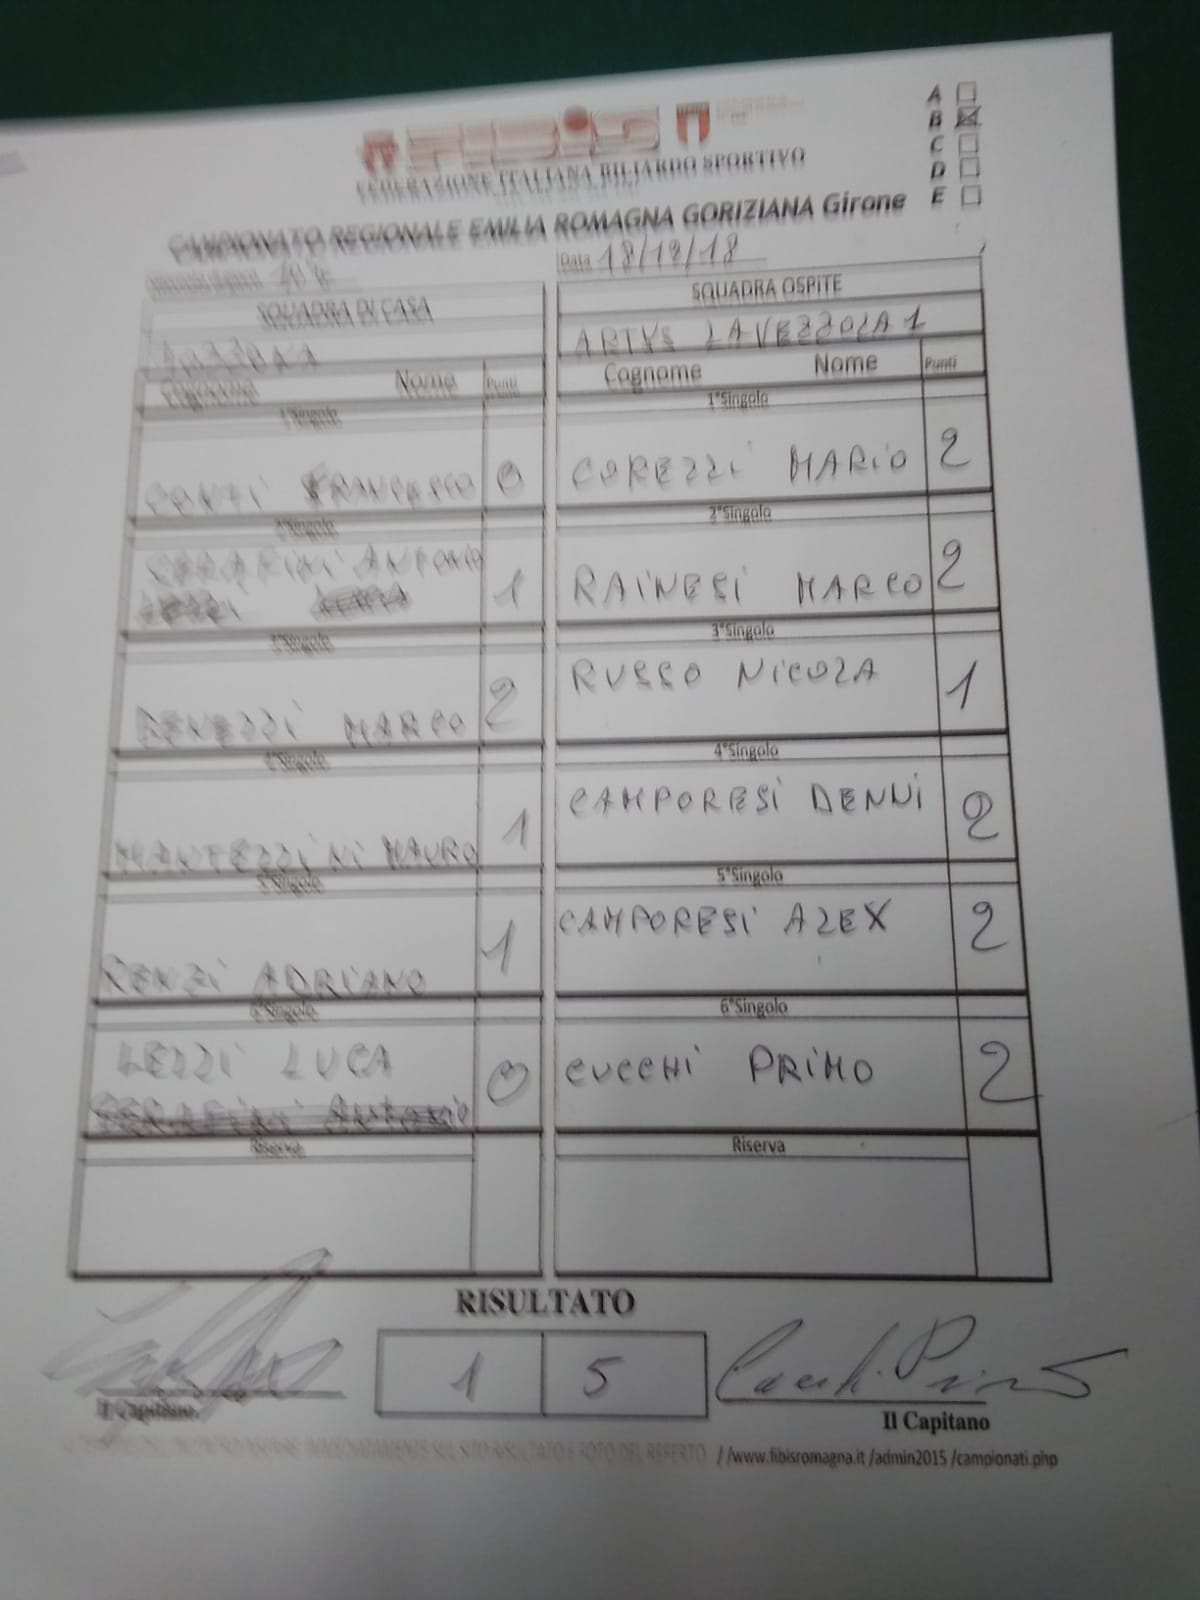 A
B
C
D
E
FIBiS
FEDERAZIONE ITALIANA BILIARDO SPORTIVO
CAMPIONATO REGIONALE EMILIA ROMAGNA GORIZIANA Girone
Data 18/12/18
SQUADRA DI CASA
SQUADRA OSPITE
ARTYS LAVEZZOLA 1
Cognome Nome Punti
Cognome Nome Punti
1°Singolo
1°Singolo
CONTI FRANCESCO 0
COREZZI MARIO 2
2°Singolo
2°Singolo
SERAFINI ANTONIO 1
RAINESI MARCO 2
3°Singolo
3°Singolo
MARCO 2
RUSSO NICOLA 1
4°Singolo
4°Singolo
MAURO 1
CAMPORESI DENNI 2
5°Singolo
5°Singolo
RENZI ADRIANO 1
CAMPORESI ALEX 2
6°Singolo
6°Singolo
LEZZI LUCA 0
SERAFINI ANTONIO
CUCCHI PRIMO 2
Riserva
Riserva
RISULTATO
1 5
Il Capitano
Il Capitano
RISULTATO E FOTO DEL REFERTO //www.fibisromagna.it /admin2015 /campionati.php